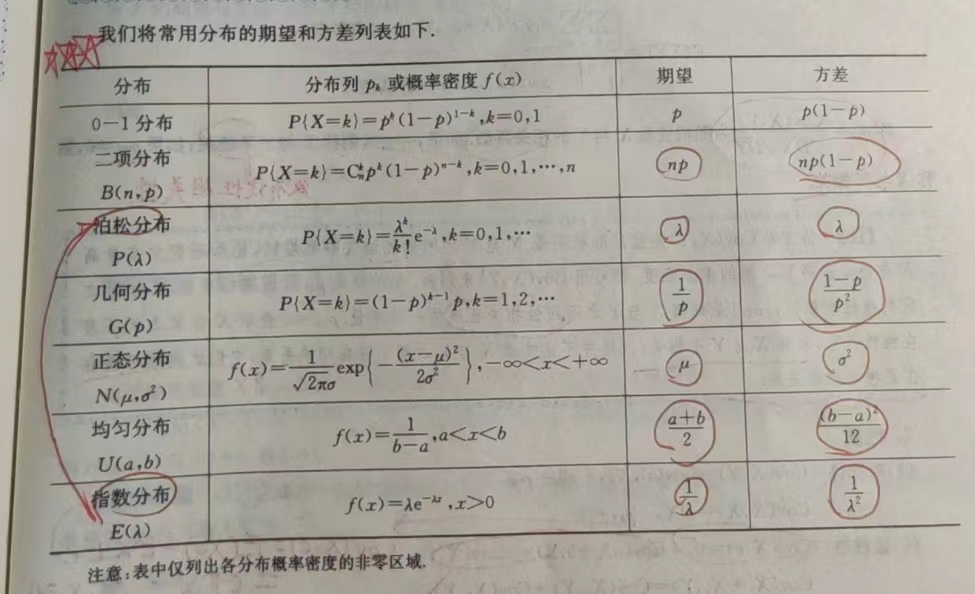 我们将常用分布的期望和方差列表如下.
分布 分布列 pₖ 或概率密度 f(x) 期望 方差
0-1 分布 P{X=k}=pᵏ(1-p)¹⁻ᵏ,k=0,1 p p(1-p)
二项分布 B(n,p) P{X=k}=Cₙᵏpᵏ(1-p)ⁿ⁻ᵏ,k=0,1,⋯,n np np(1-p)
泊松分布 P(λ) P{X=k}=λᵏ/k! e^{-λ},k=0,1,⋯ λ λ
几何分布 G(p) P{X=k}=(1-p)ᵏ⁻¹p,k=1,2,⋯ 1/p (1-p)/p²
正态分布 N(μ,σ²) f(x)=1/(√2πσ) exp{-(x-μ)²/2σ²},-∞<x<+∞ μ σ²
均匀分布 U(a,b) f(x)=1/(b-a),a<x<b (a+b)/2 (b-a)²/12
指数分布 E(λ) f(x)=λe^{-λx},x>0 1/λ 1/λ²
注意:表中仅列出各分布概率密度的非零区域.